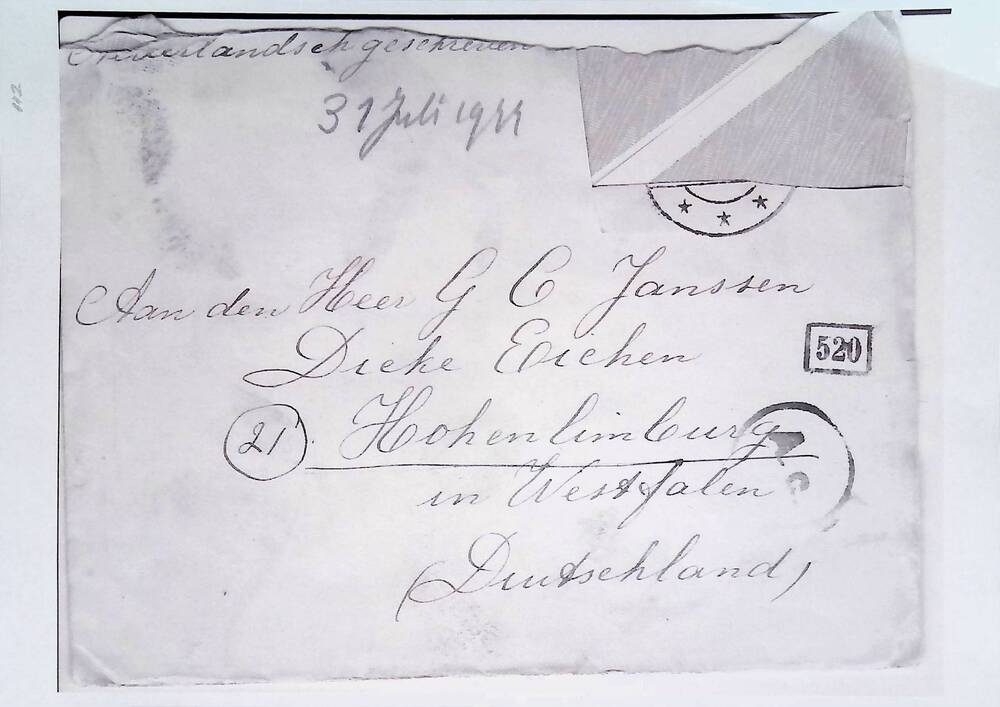 Nederlandsch geschreven
31 Juli 1944
Aan den Heer G C Janssen
Dicke Eichen
520
21 Hohenlimburg
in Westfalen
(Deutschland)
112